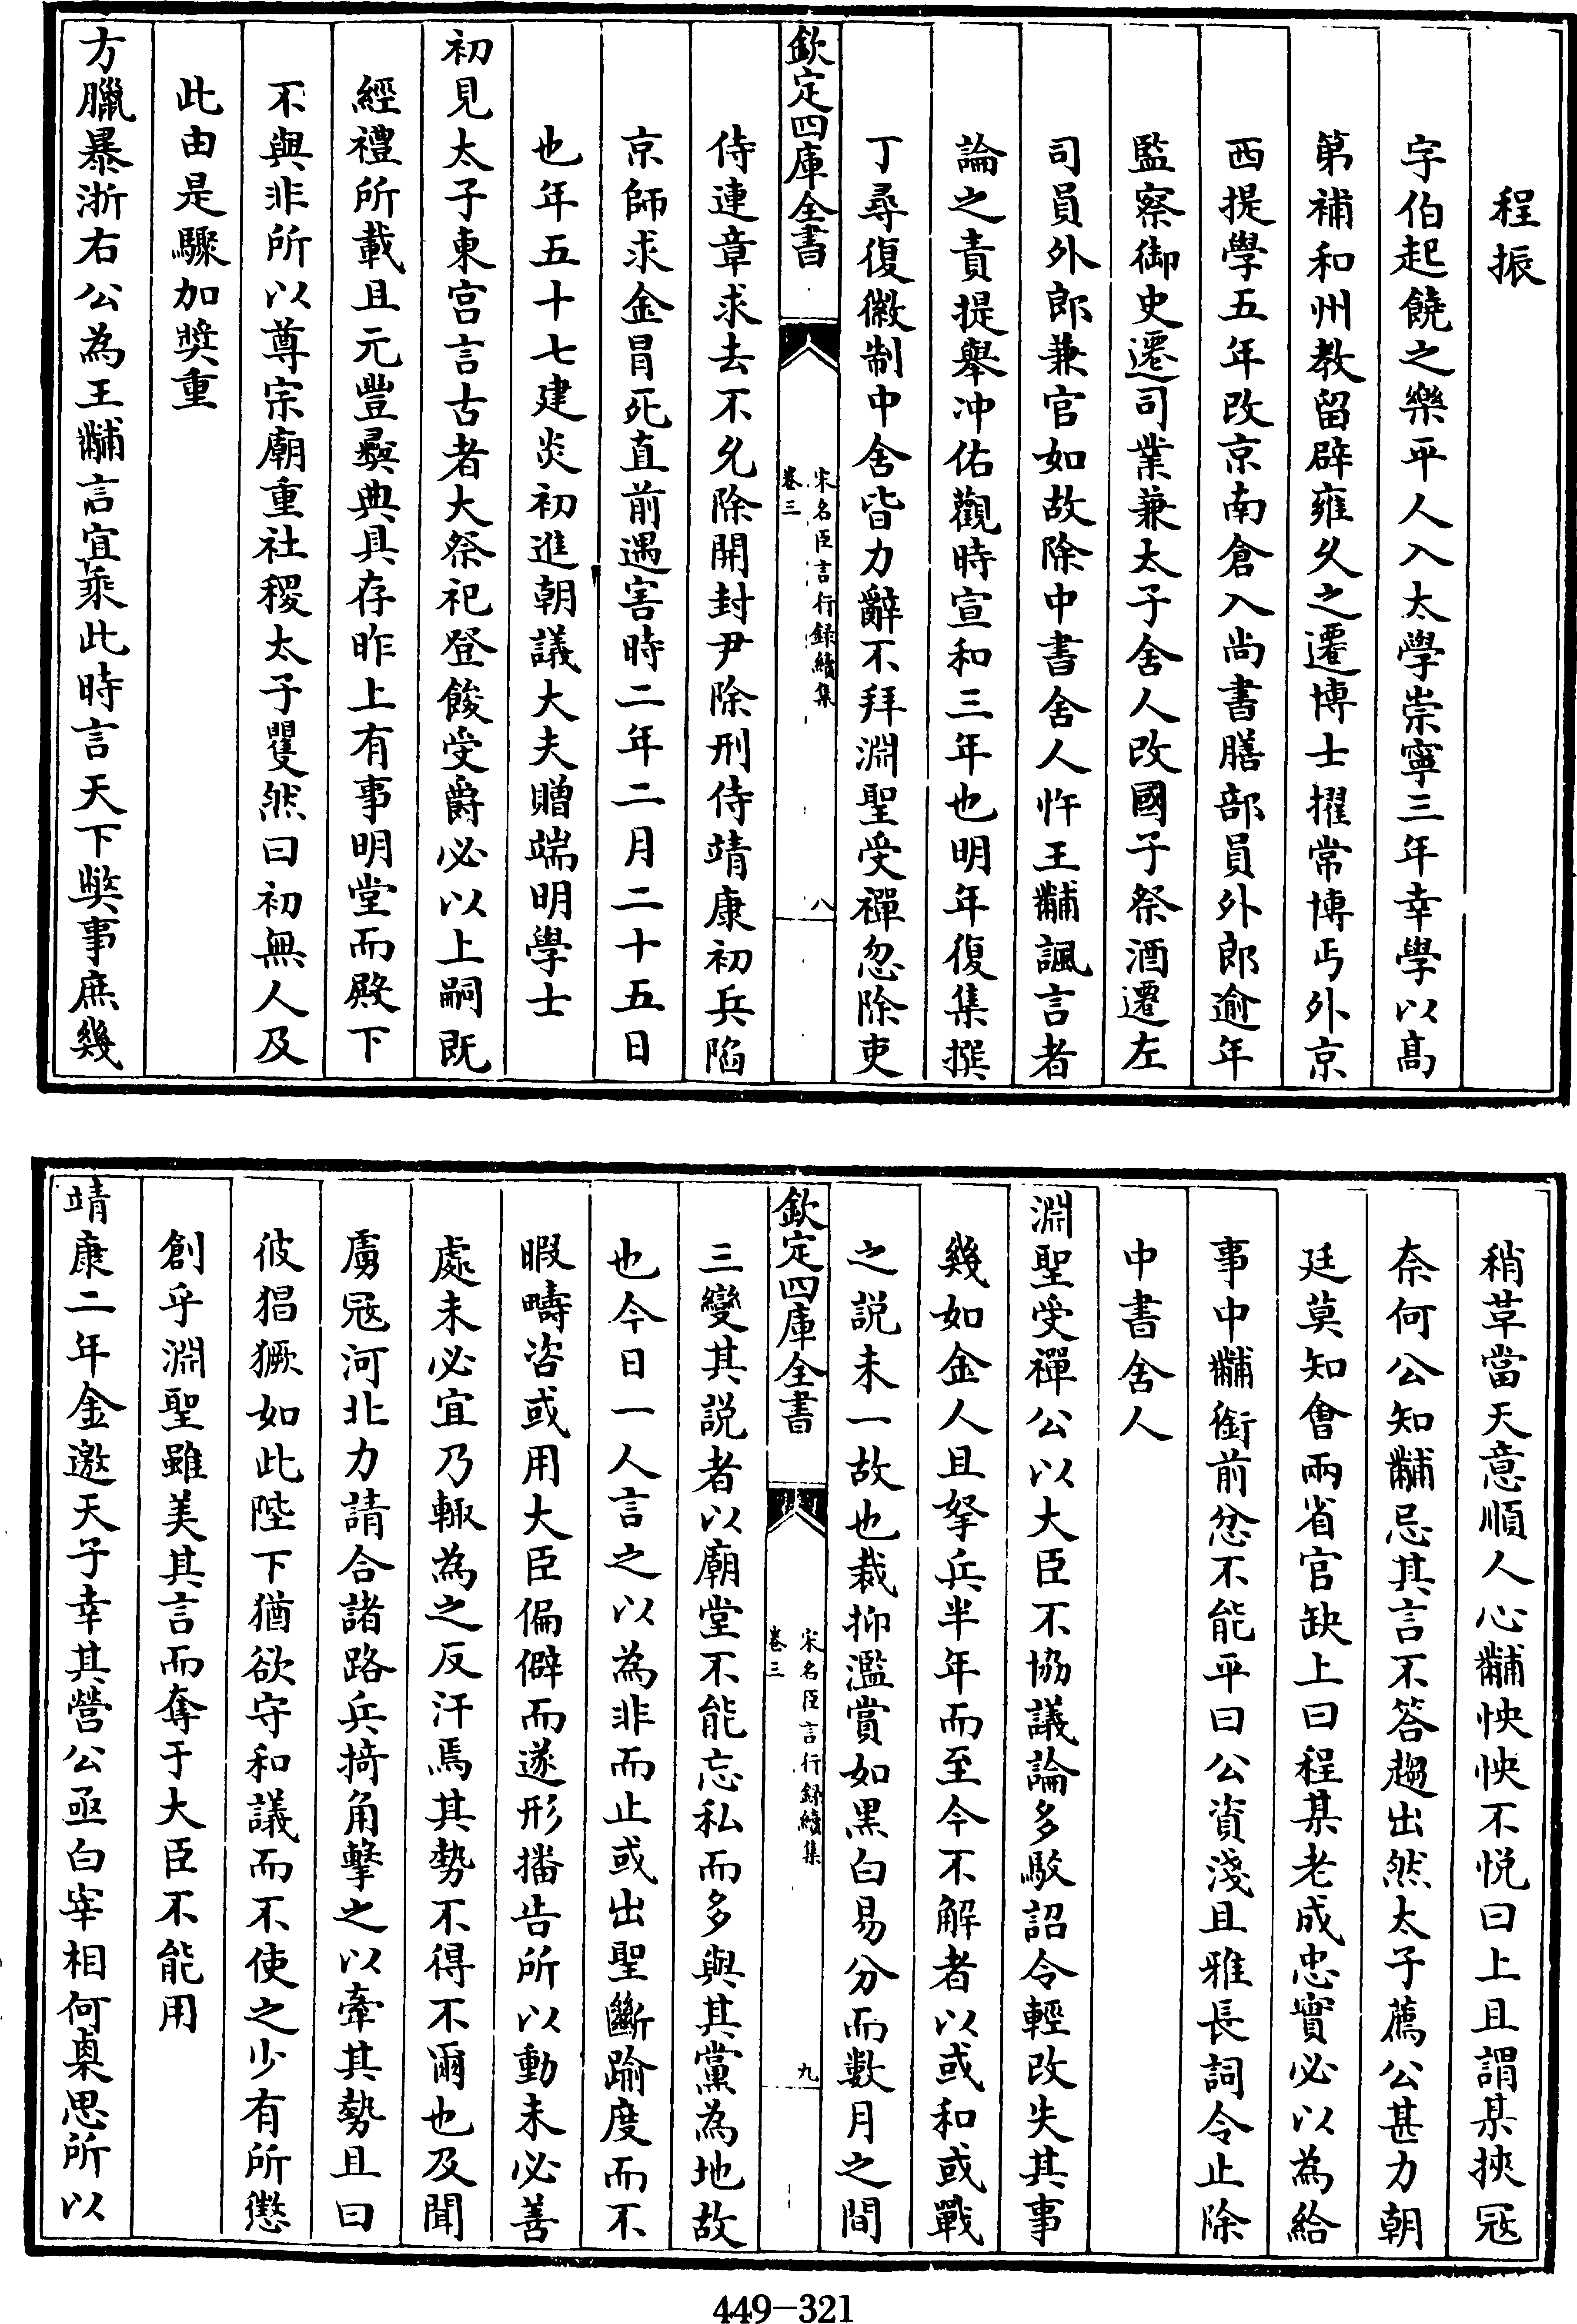 程振
字伯起饒之樂平人入太學崇寧三年幸學以髙
第補和州教留辟雍久之遷博士擢常博丐外京
西提學五年改京南倉入尚書膳部員外郎逾年
監察御史遷司業兼太子舍人改國子祭酒遷左
司員外郎兼官如故除中書舍人忤王黼諷言者
論之責提舉冲佑觀時宣和三年也明年復集撰
丁尋復徽制中舍皆力辭不拜淵聖受禪忽除吏
欽定四庫全書
宋名臣言行録續集
卷三
八
侍連章求去不允除開封尹除刑侍靖康初兵陷
京師求金冒死直前遇害時二年二月二十五日
也年五十七建炎初進朝議大夫贈端明學士
初見太子東宫言古者大祭祀登餕受爵必以上嗣既
經禮所載且元豐彛典具存昨上有事明堂而殿下
不與非所以尊宗廟重社稷太子瞿然曰初無人及
此由是驟加奬重
方臘暴浙右公為王黼言宜乘此時言天下弊事庶幾
稍草當天意順人心黼怏怏不悅曰上且謂某挾冦
奈何公知黼忌其言不答趨出然太子薦公甚力朝
廷莫知會兩省官缺上曰程某老成忠實必以為給
事中黼銜前忿不能平曰公資淺且雅長詞令止除
中書舍人
淵聖受禪公以大臣不協議論多駮詔令輕改失其事
幾如金人且拏兵半年而至今不解者以或和或戰
之說未一故也裁抑濫賞如黑白易分而數月之間
欽定四庫全書
宋名臣言行録續集
卷三
九
三變其説者以廟堂不能忘私而多與其黨為地故
也今日一人言之以為非而止或出聖斷踰度而不
暇疇咨或用大臣偏僻而遂形播告所以動未必善
處未必宜乃輙為之反汗焉其勢不得不爾也及聞
虜冦河北力請合諸路兵掎角擊之以牽其勢且曰
彼猖獗如此陛下猶欲守和議而不使之少有所懲
創乎淵聖雖美其言而奪于大臣不能用
靖康二年金邀天子幸其營公亟白宰相何㮚思所以
449-321